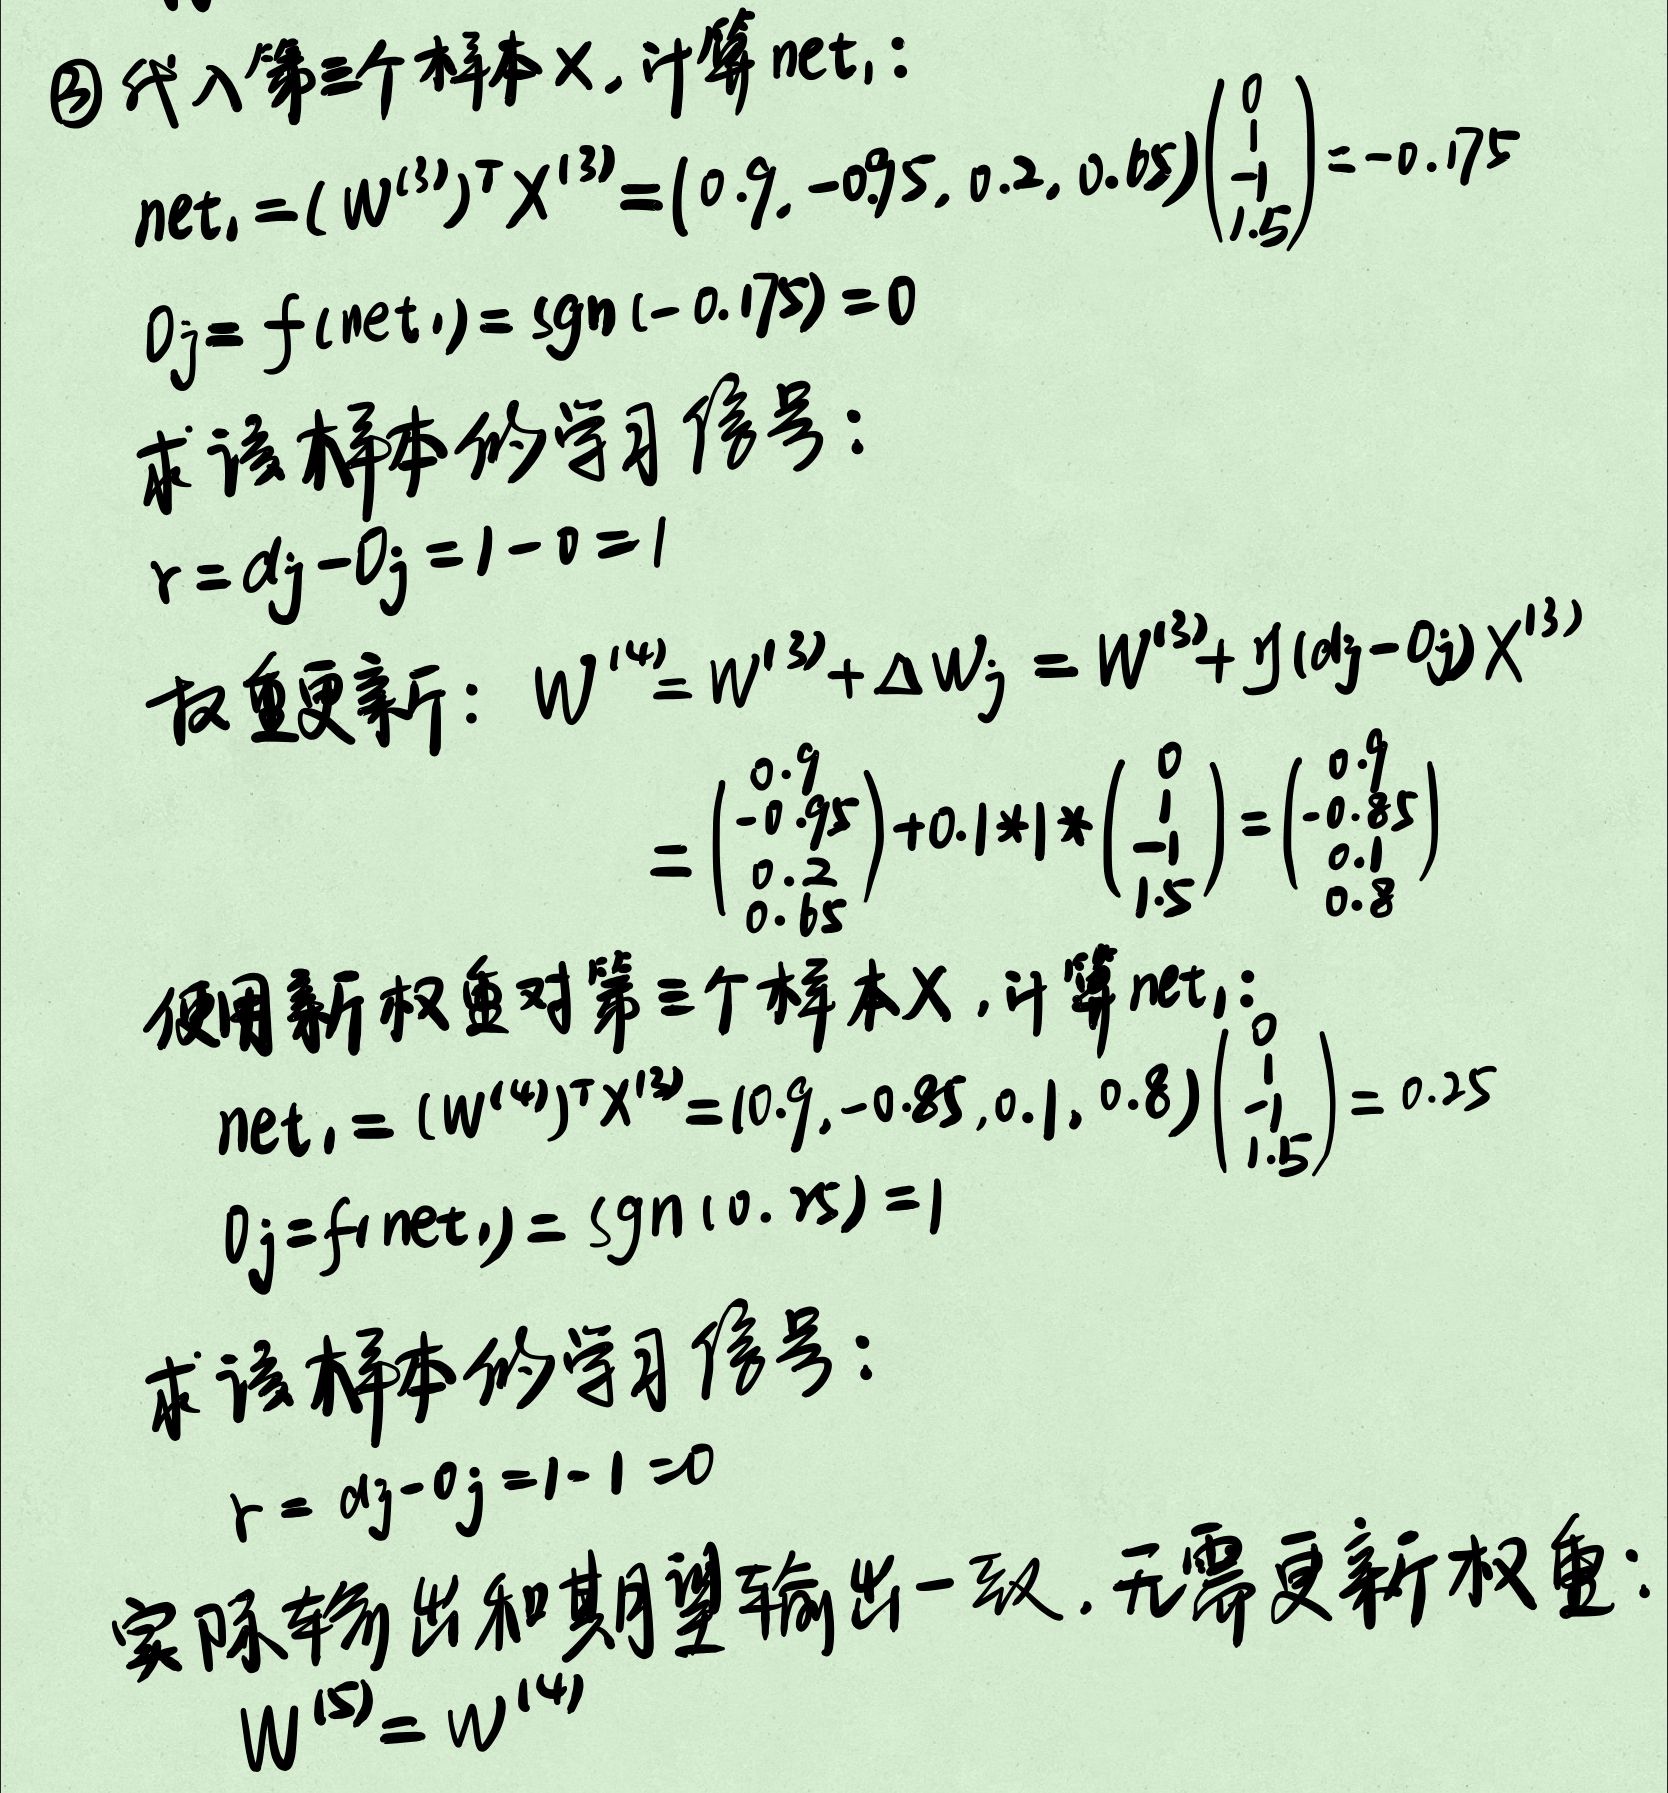 ③代入第三个样本X,计算net₁:
net₁=(W⁽³⁾)ᵀX⁽³⁾=(0.9,-0.95,0.2,0.65)(0 1 -1 1.5)=-0.175
Oj=f(net₁)=sgn(-0.175)=0
求该样本的学习信号:
r=dj-Oj=1-0=1
权重更新: W⁽⁴⁾=W⁽³⁾+ΔWj=W⁽³⁾+η(dj-Oj)X⁽³⁾
=(0.9 -0.95 0.2 0.65)+0.1*1*(0 1 -1 1.5)=(0.9 -0.85 0.1 0.8)
使用新权重对第三个样本X,计算net₁:
net₁=(W⁽⁴⁾)ᵀX⁽³⁾=(0.9,-0.85,0.1,0.8)(0 1 -1 1.5)=0.25
Oj=f(net₁)=sgn(0.25)=1
求该样本的学习信号:
r=dj-Oj=1-1=0
实际输出和期望输出一致,无需更新权重:
W⁽⁵⁾=W⁽⁴⁾